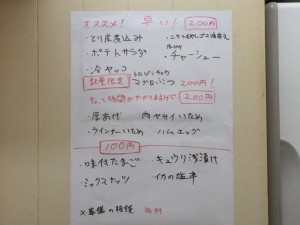 オススメ! 早い! 200円
・とり皮煮込み
・ポテトサラダ
・チャーシュー
・冷ヤッコ
数量限定 マグロぶつ 200円!
ちょっと時間がかかりますけど 200円
・厚あげ ・肉ヤサイいため
・ウインナーいため ・ハムエッグ
100円
・味付たまご ・キュウリ浅漬け
・ミックスナッツ ・イカの塩辛
×葬儀の相談 無料